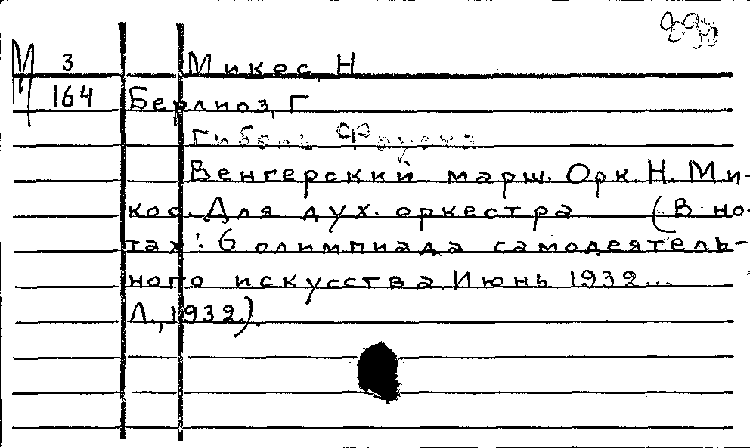 М 3
164
Микос, Н
Берлиоз, Г
Гибель Фауста
Венгерский марш. Орк. Н. Ми-
кос. Для дух. оркестра (В но-
тах: 6 олимпиада самодеятель-
ного искусства. Июнь 1932...
Л., 1932).